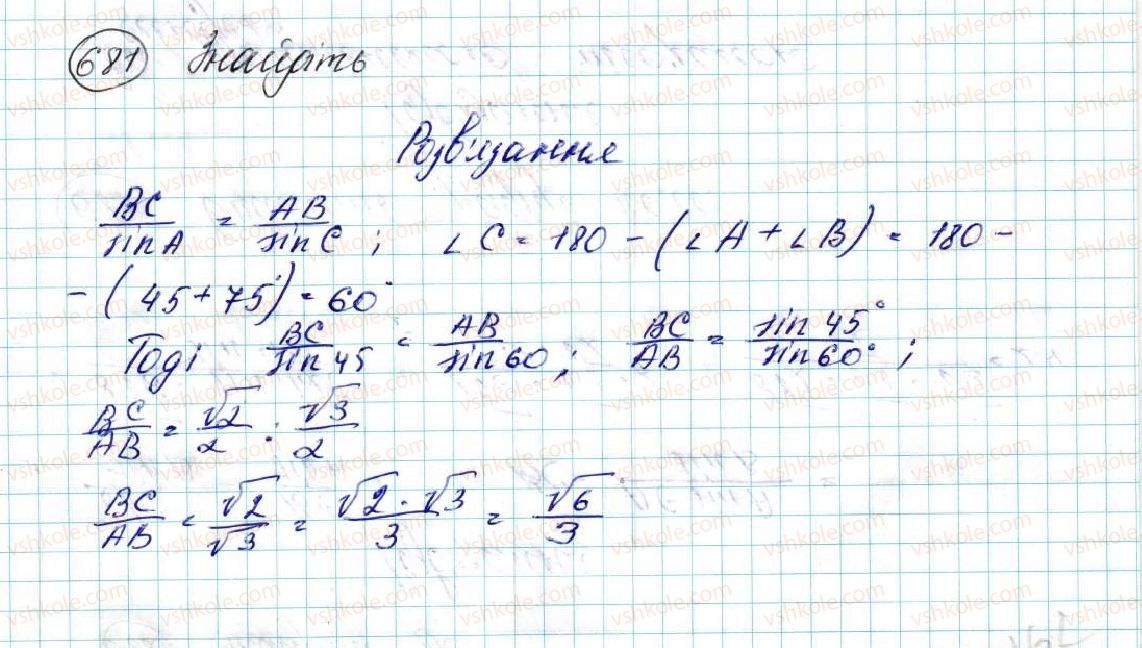 681 Знайдіть
Розв'язання
BC/sin A = AB/sin C ; ∠C = 180 - (∠A + ∠B) = 180 -
- (45 + 75) = 60°
Тоді BC/sin 45 = AB/sin 60 ; BC/AB = sin 45°/sin 60° ;
BC/AB = √2/2 : √3/2
BC/AB = √2/√3 = √2 · √3/3 = √6/3